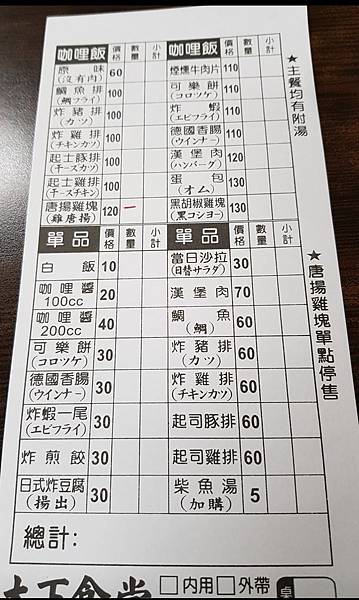 咖哩飯 價格 數量 小計 咖哩飯 價格 數量 小計
原味(沒有肉) 60 煙燻牛肉片 110
鯛魚排(鯛フライ) 100 可樂餅(コロッケ) 110
炸豬排(カツ) 100 炸蝦(エビフライ) 110
炸雞排(チキンカツ) 100 德國香腸(ウインナー) 110
起士豚排(チースカツ) 100 漢堡肉(ハンバーグ) 120
起士雞排(チースチキン) 100 蛋包(オム) 130
唐揚雞塊(雞唐揚) 120 一 黑胡椒雞塊(黒コショー) 130
單品 價格 數量 小計 單品 價格 數量 小計
白飯 10 當日沙拉(日替サラダ) 30
咖哩醬100cc 20 漢堡肉 70
咖哩醬200cc 40 鯛魚(鯛) 60
可樂餅(コロツケ) 30 炸豬排(カツ) 60
德國香腸(ウインナー) 30 炸雞排(チキンカツ) 60
炸蝦一尾(エビフライ) 30 起司豚排 60
炸煎餃 30 起司雞排 60
日式炸豆腐(揚出) 30 柴魚湯(加購) 5
總計:
★主餐均有附湯
★唐揚雞塊單點停售
食堂 □內用 □外帶 桌